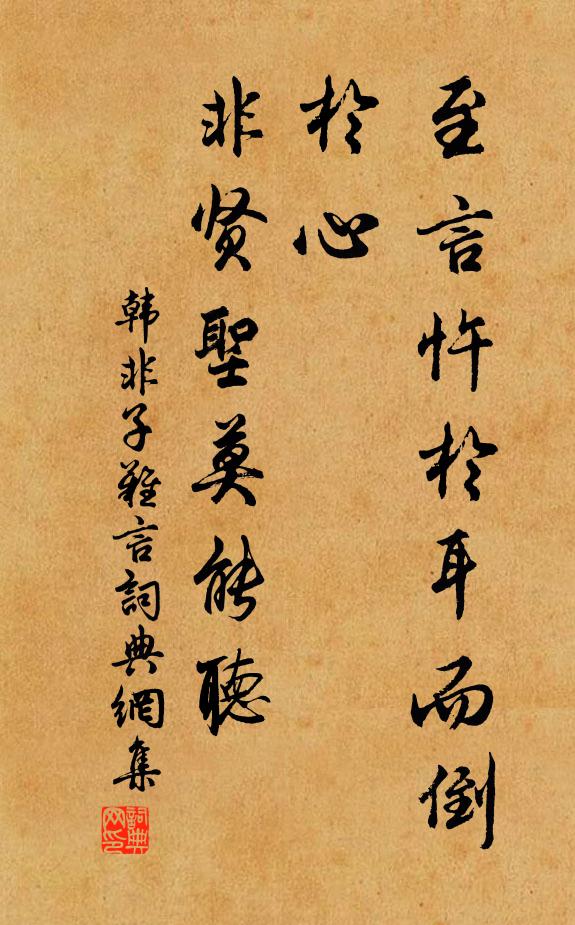 至言忤於耳而倒
於心
非贤聖莫能聽
韩非子難言詞典網集
詞典网印